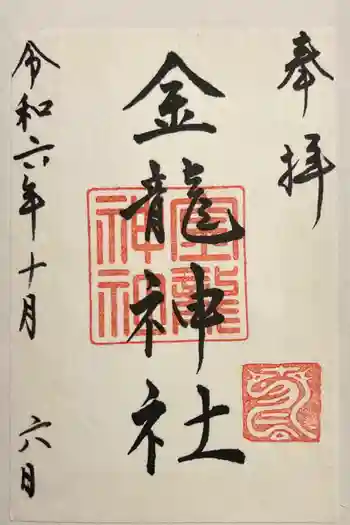 奉拝
金龍神社
金龍
神社
令和六年十月 六日